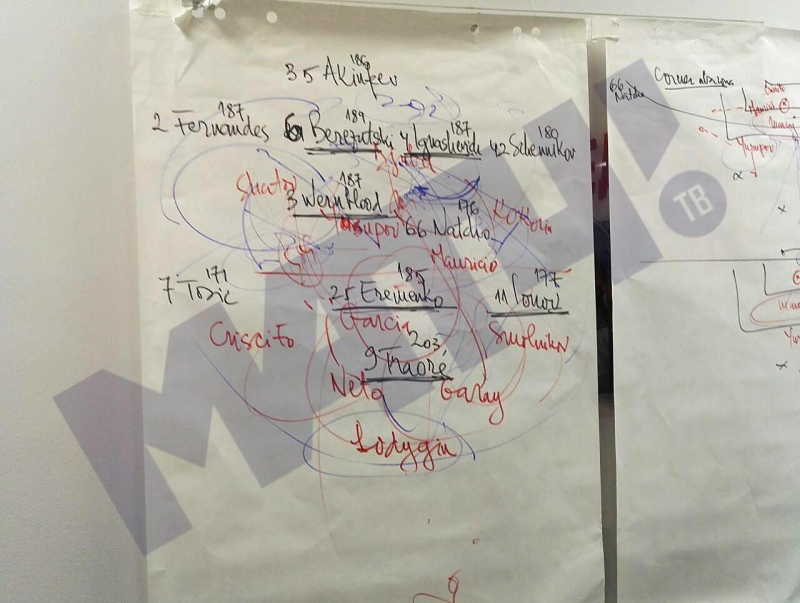 186
35 Akinfev
187 189 187 180
2 Fernandes 6 Berezutski 4 Ignashevich 42 Schennikov
Shatov 187
3 Wernblood
176
Yusupov 66 Natcho Kokorin
Mauricio
171 185 177
7 Tosic 25 Eremenko 11 Ionov
Criscito Garcia Smolnikov
203
9 Traoré
Neto Garay
Lodygin
Corner
66 Natcho
Yusupov
МАТЧ!
ТВ